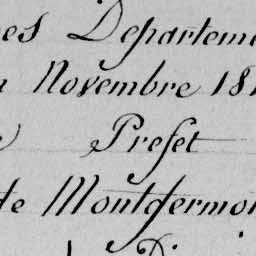 es Departeme
Novembre 181
Prefet
de Montfermo